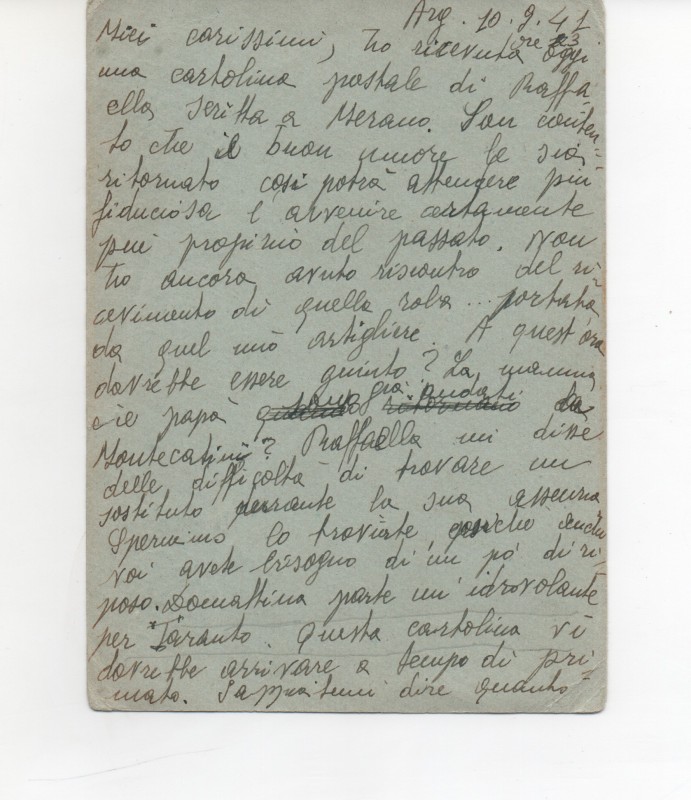 Arg. 10.9.41
ore 23
Miei carissimi, ho ricevuta oggi
una cartolina postale di Raffa-
ella scritta a Merano. Son conten-
to che il buon umore le sia
ritornato così potrà attendere più
fiduciosa l'avvenire certamente
più propizio del passato. Non
ho ancora avuto riscontro del ri-
cevimento di quella roba... portata
da quel mio artigliere. A quest'ora
dovrebbe essere giunto? La mamma
e papà sono già andati a
Montecatini? Raffaella mi disse
delle difficoltà di trovare un
sostituto durante la sua assenza
Speriamo lo troviate perché anche
voi avete bisogno di un pò di ri-
poso. Domattina parte un'idrovolante
per Taranto. Questa cartolina vi
dovrebbe arrivare a tempo di pri-
mato. Sappiatemi dire quanto